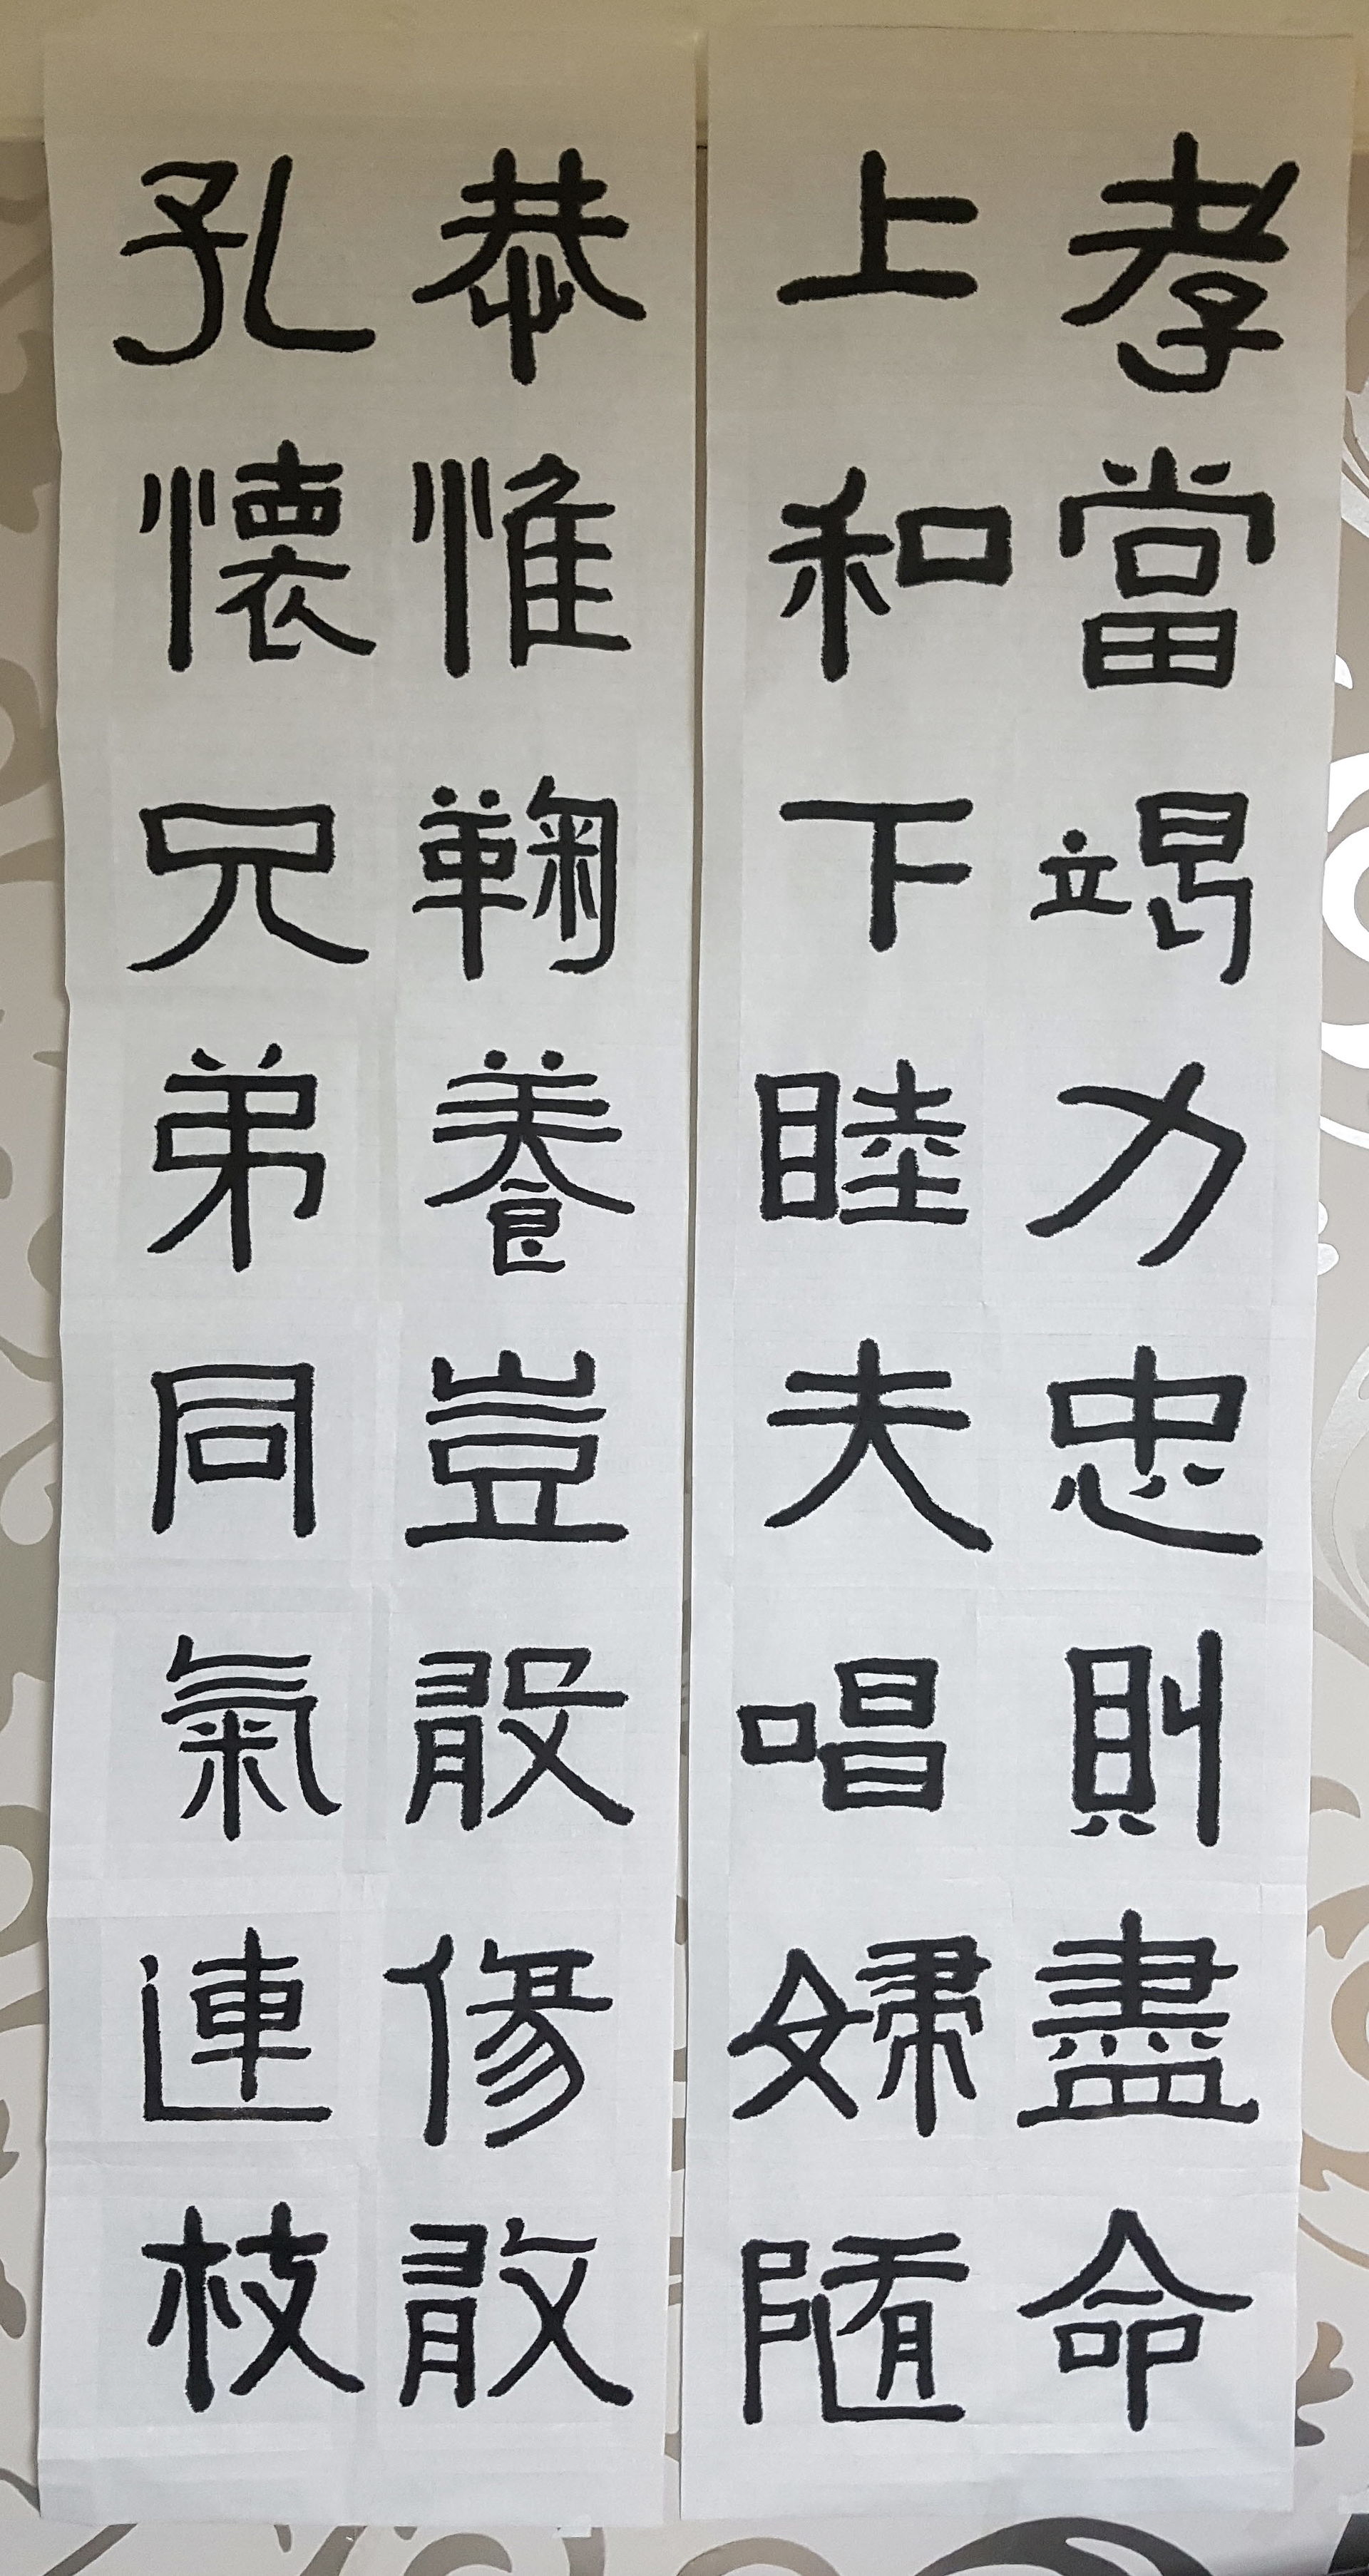 孝當竭力忠則盡命
上和下睦夫唱婦随
恭惟鞠養豈傷敢
孔懐兄弟同氣連枝